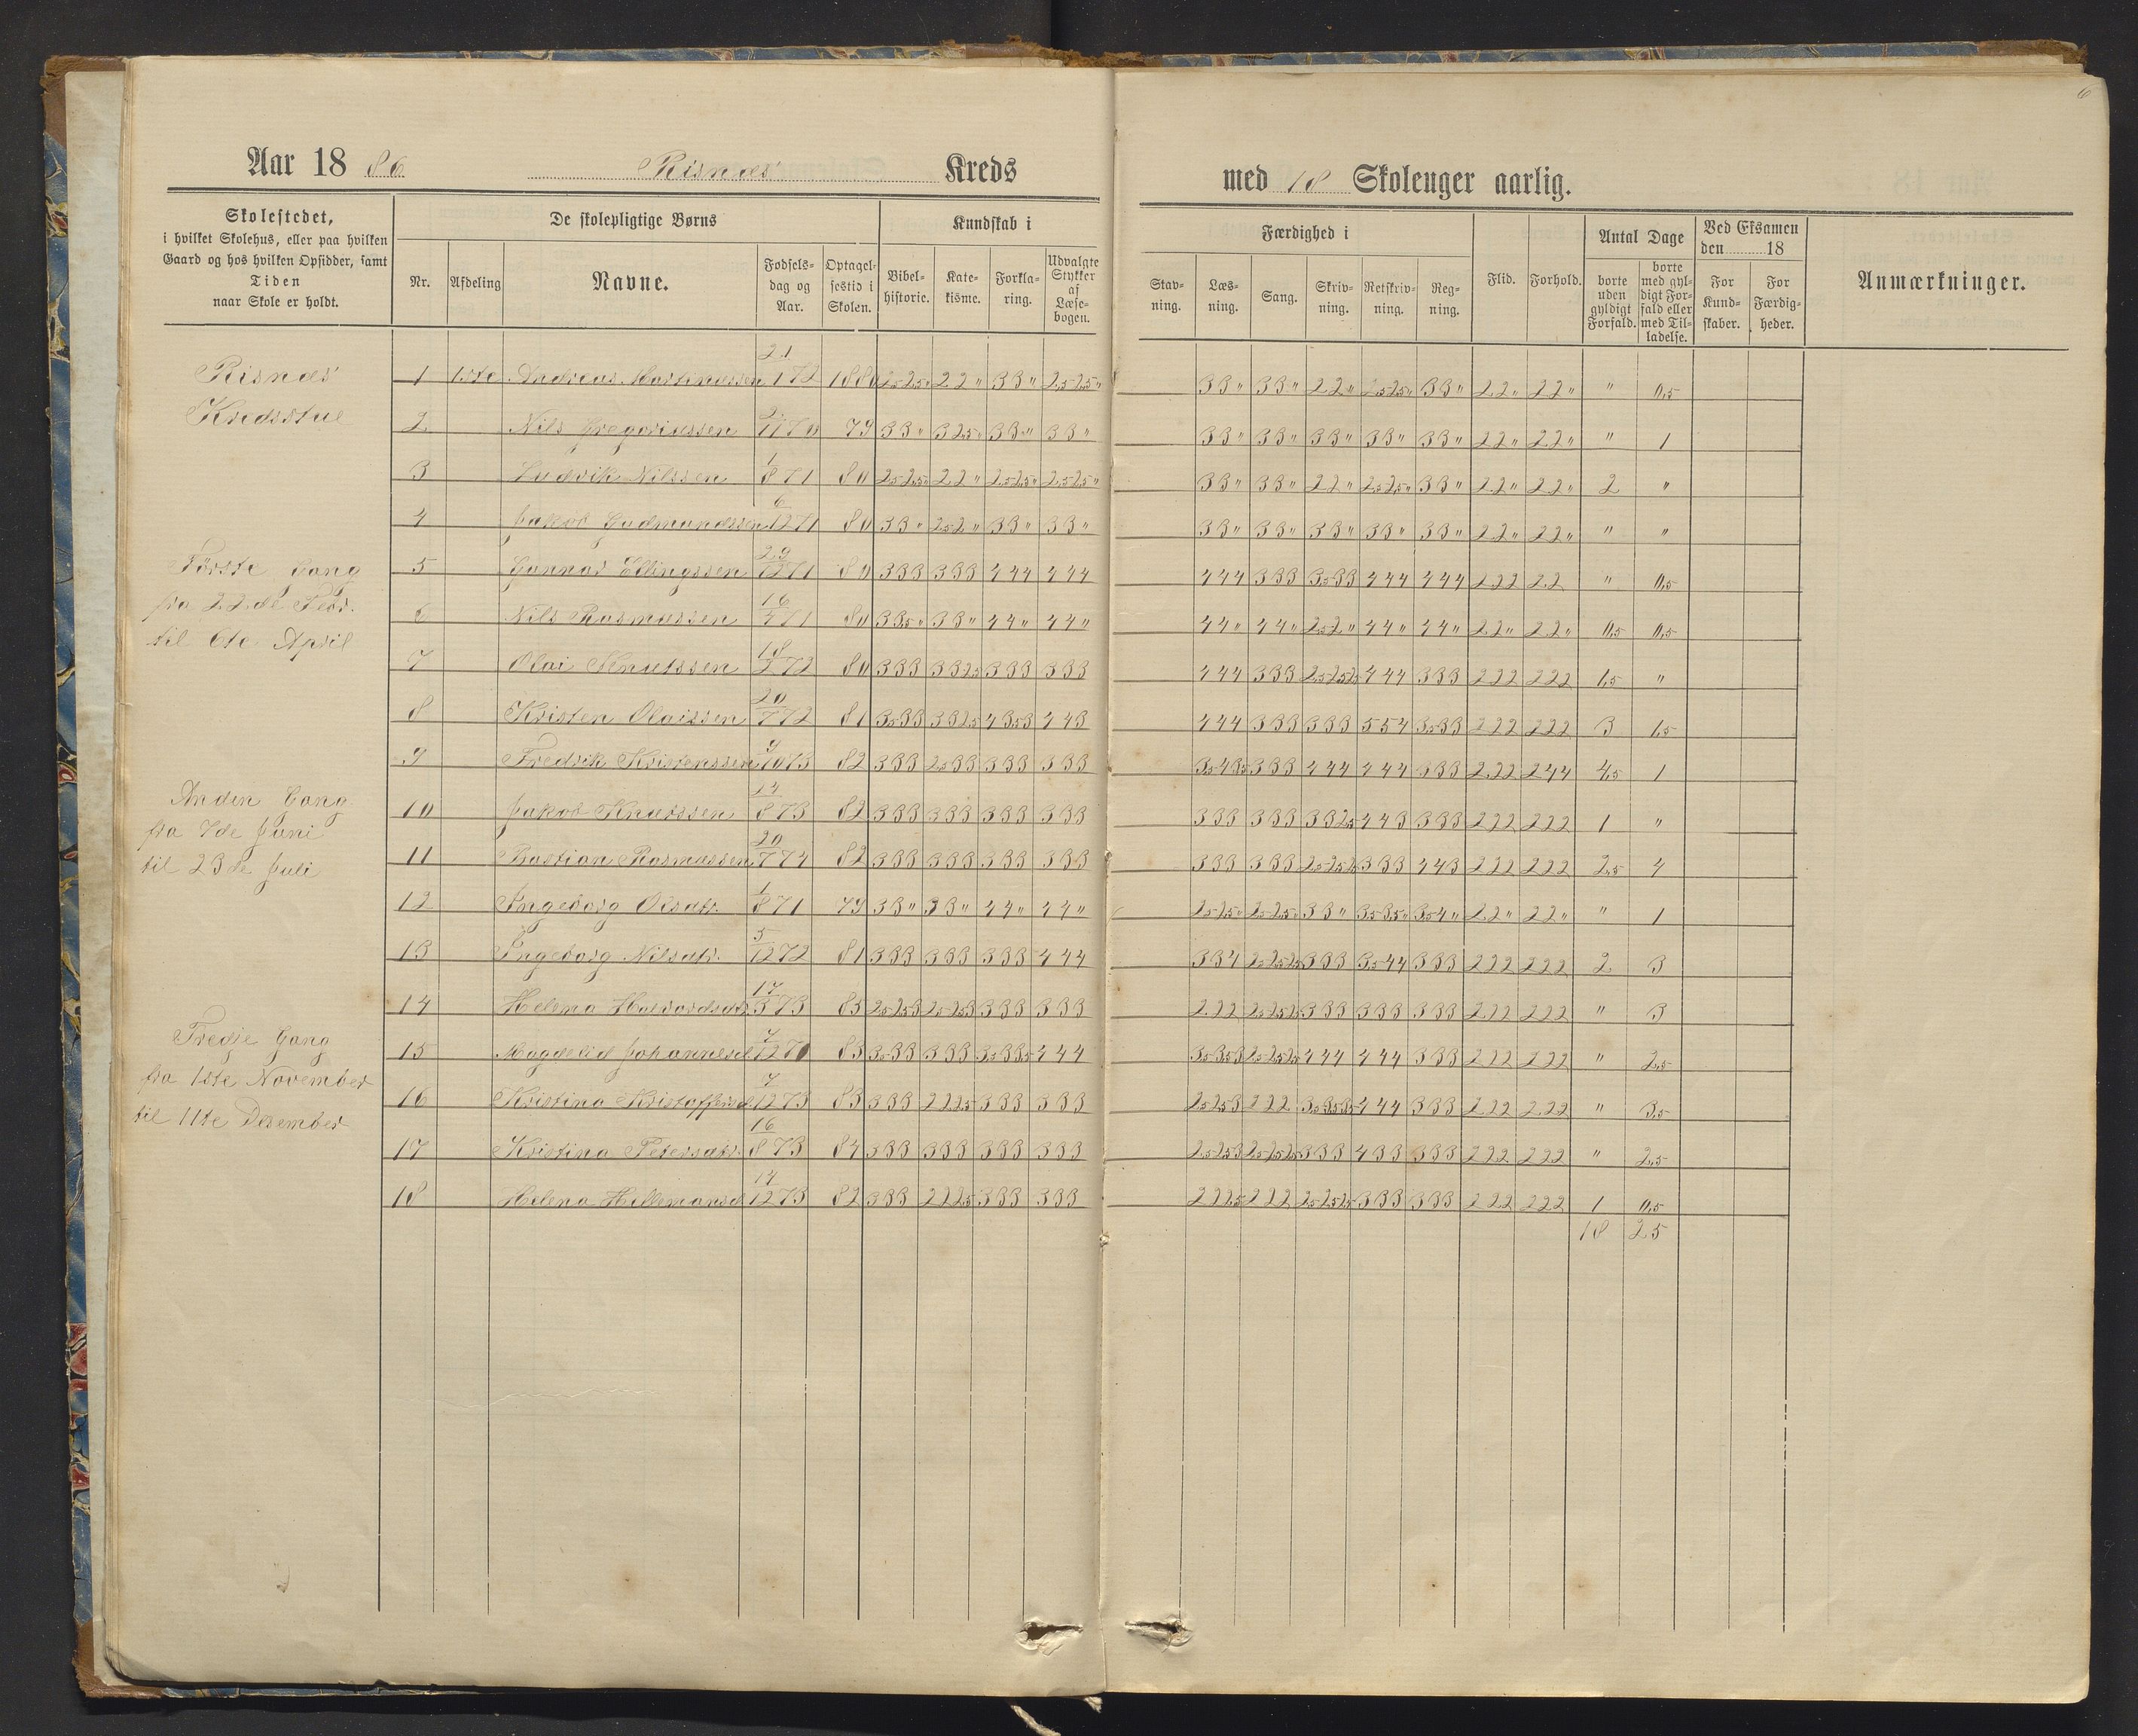 6
Aar 1886 Risnæs Kreds
med 18 Skoleuger aarlig.
Skolestedet,
i hvilket Skolehus, eller paa hvilken
Gaard og hos hvilken Opsidder, samt
Tiden
naar Skole er holdt.
De skolepligtige Børns
Nr. Afdeling Navne. Fødsels-dag og Aar. Optagel-sestid i Skolen.
Kundskab i
Bibel-historie. Kate-kisme. Forkla-ring. Udvalgte Stykker af Læse-bogen.
Færdighed i
Stav-ning. Læs-ning. Sang. Skriv-ning. Retskriv-ning. Reg-ning.
Flid. Forhold.
Antal Dage
borte uden gyldigt Forfald. borte med gyl-digt For-fald eller med Til-ladelse.
Ved Eksamen den 18
For Kund-skaber. For Færdig-heder.
Anmærkninger.
Risnæs
Kredsstue
Første Gang
fra 22de Febr.
til 6te April
Anden Gang
fra 7de Juni
til 23de Juli
Tredje Gang
fra 1ste November
til 11te Desember
1 1ste Andreas Martinussen 21/1 72 1880 2,5 2,5 " 2 2 " 3 3 " 2,5 2,5 " 3 3 " 3 3 " 2 2 " 2,5 2,5 " 3 3 " 2 2 " 2 2 " " 0,5
2 Nils Gregoriussen 70 79 3 3 " 3 2,5 " 3 3 " 3 3 " 3 3 " 3 3 " 3 3 " 3 3 " 3 3 " 2 2 " 2 2 " " 1
3 Ludvik Nilssen 1/8 71 80 2,5 2,5 " 2 2 " 2,5 2,5 " 2,5 2,5 " 3 3 " 3 3 " 2 2 " 2,5 2,5 " 3 3 " 2 2 " 2 2 " 2 "
4 Jakob Gudmundssen 6/12 71 80 3 3 " 2,5 2 " 3 3 " 3 3 " 3 3 " 3 3 " 3 3 " 3 3 " 3 3 " 2 2 " 2 2 " " "
5 Gunnar Ellingssen 29/12 71 80 3 3 3 3 3 3 4 4 4 4 4 4 4 4 4 3 3 3 3,5 3 3 4 4 4 4 4 4 2 2 2 2 2 " 0,5
6 Nils Rasmussen 16 71 80 3 3,5 " 3 3 " 4 4 " 4 4 " 4 4 " 4 4 " 2,5 2 " 4 4 " 4 4 " 2 2 " 2 2 " 0,5 0,5
7 Olai Knutssen 18/2 72 80 3 3 3 3 3 2,5 3 3 3 3 3 3 4 4 4 3 3 3 2,5 2,5 2,5 4 4 4 3 3 3 2 2 2 2 2 2 1,5 "
8 Kristen Olaissen 20/7 72 81 3,5 3 3 3 3 2,5 4 3,5 3 4 4 3 4 4 4 3 3 3 3 3 3 5 5 4 3,5 3 3 2 2 2 2 2 2 3 1,5
9 Fredrik Kristenssen 9/10 73 82 3 3 3 2,5 3 3 3 3 3 3 3 3 3,5 4 3,5 3 3 3 4 4 4 4 4 4 3 3 3 2 2 2 2 4 4 4,5 1
10 Jakob Knutssen 14/8 73 82 3 3 3 3 3 3 3 3 3 3 3 3 3 3 3 3 3 3 3 3 2,5 4 4 3 3 3 3 2 2 2 2 2 2 1 "
11 Bastian Rasmussen 20/7 74 82 3 3 3 3 3 3 3 3 3 3 3 3 3 3 3 3 3 3 2,5 2,5 2,5 3 3 3 4 4 3 2 2 2 2 2 2 2,5 4
12 Ingeborg 1/8 71 79 3 3 " 3 3 " 4 4 " 4 4 " 2,5 2,5 " 2,5 2,5 " 3 3 " 3,5 3,5 " 3,5 4 " 2 2 " 2 2 " " 1
13 Ingeborg Nilsdtr. 5/12 72 81 3 3 3 3 3 3 3 3 3 4 4 4 3 3 4 2,5 2,5 2,5 3 3 3 3,5 4 4 3 3 3 2 2 2 2 2 2 2 3
14 Helena Halvardsdtr 17/3 73 83 2,5 2,5 3 2,5 2,5 3 3 3 3 3 3 3 2 2 2 2,5 2,5 2,5 3 3 3 3 3 3 3 3 3 2 2 2 2 2 2 " 3
15 Magdeli Johannesd 7/12 70 83 3,5 3 3 3 3 3 3,5 3 3,5 4 4 4 3,5 3,5 3 2,5 2,5 2,5 4 4 4 4 4 4 3 3 3 2 2 2 2 2 2 " 2,5
16 Kristina Kristoffersd 7/12 73 83 3 3 3 2 2 2,5 3 3 3 3 3 3 2,5 2,5 3 2 2 2 3,5 3,5 3,5 4 4 4 3 3 3 2 2 2 2 2 2 " 3,5
17 Kristina Petersdtr. 16/8 73 84 3 3 3 3 3 3 3 3 3 3 3 3 2,5 2,5 3 2,5 2,5 2,5 3 3 3 4 3 3 3 3 3 2 2 2 2 2 2 " 2,5
18 Helena Hellemansd 14/12 73 82 3 3 3 2 2 2,5 3 3 3 3 3 3 2 2 2,5 2 2 2 2,5 2,5 2,5 3 3 3 3 3 3 2 2 2 2 2 2 1 0,5
18 25